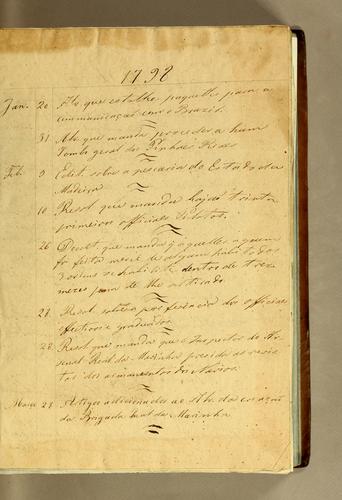 1798
Jan. 20 Alv. que estabelece paquetes para a
communicaçaõ com o Brazil.
31 Alv. que manda proceder a hum
Tombo geral dos Pinhaes Reaes
Feb. 9 Edit. sobre a pescaria do Estado da
Madeira
10 Resol. que manda hajaõ trinta
primeiros officiaes Pilotos.
26 Decret. que manda q aquelles a quem
for feita mercê de algum habito das
3 ordens se habilite dentro de tres
mezes pena de lhe
27 Resol. sobre a preferencia dos officiaes
effectivos e graduados
28 Resol. que manda que o Inspector do Ar-
senal Real da Marinha presida as revis-
tas dos armamentos dos Navios.
Março 28 Artigos addicionados ao Alv. da creaçaõ
da Brigada Real da Marinha